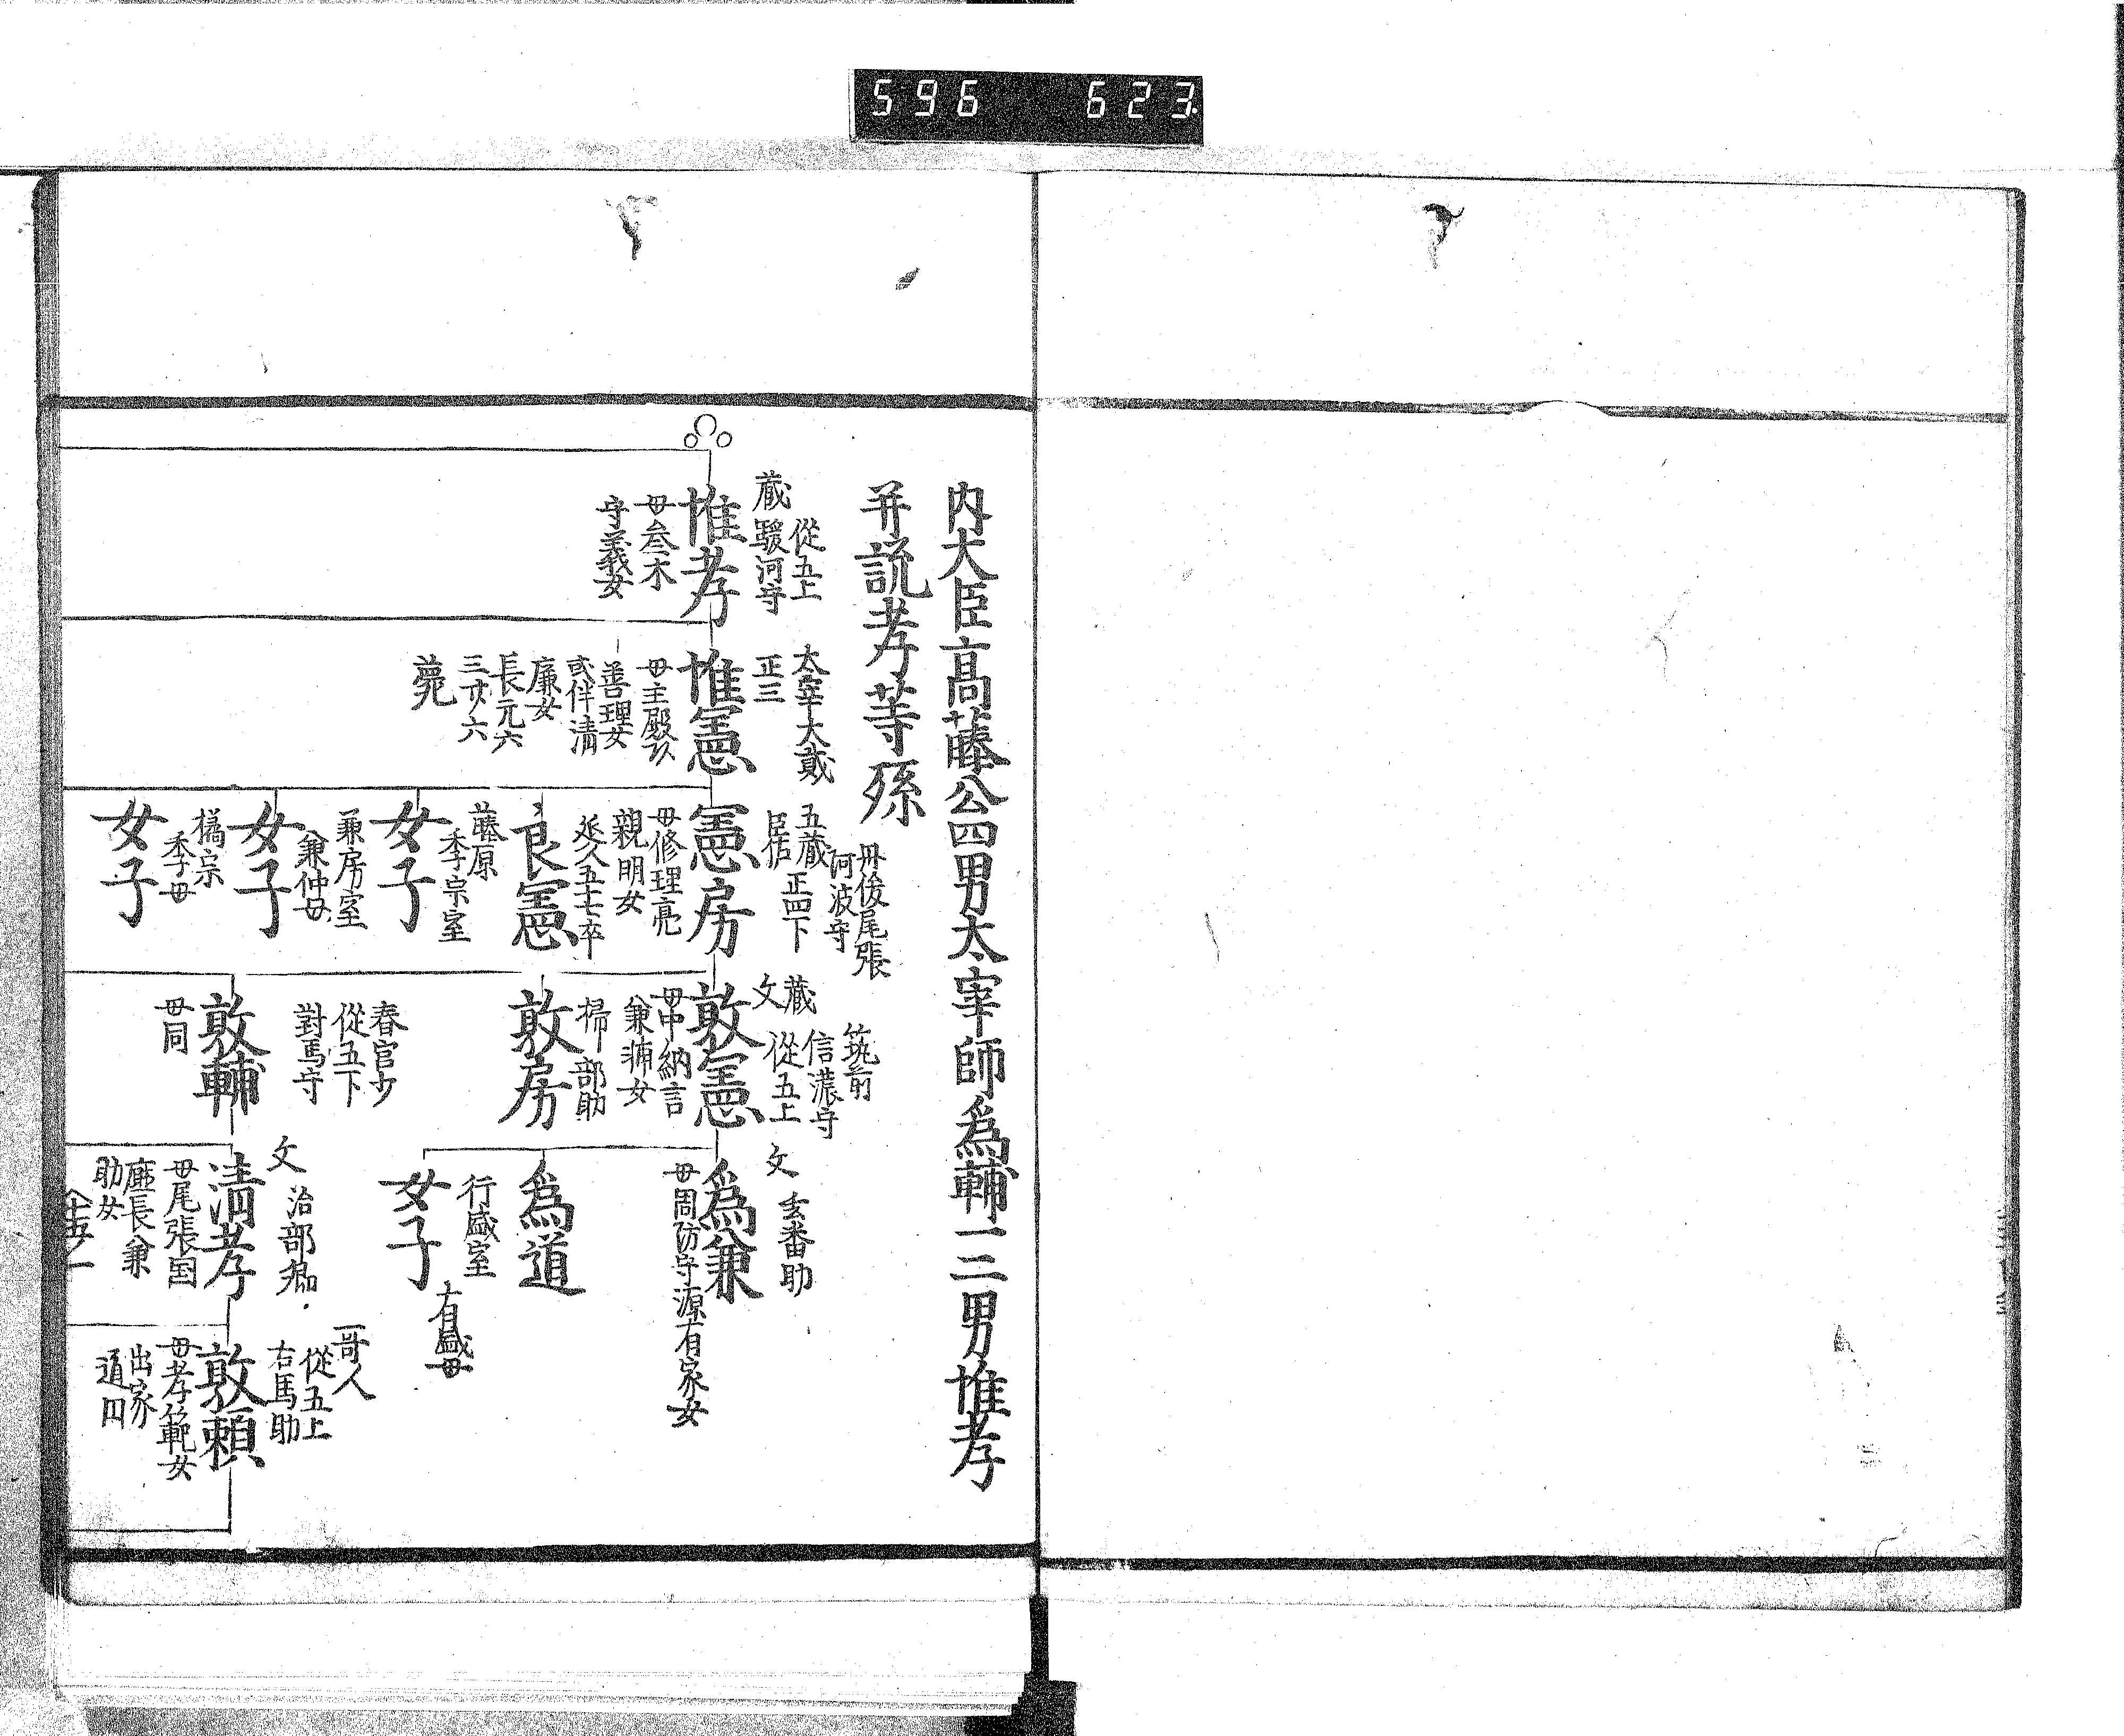 596 623
内大臣高藤公四男太宰師為輔一二男惟孝
并説孝等孫
蔵
従五上
駿河守
惟孝
母叅木
守義女
太宰大貳
正三
惟憲
母主殿
善理女
或伴清
廉女
長元六
三廿六
薨
丹後尾張
阿波守
五蔵
正四下
憲房
母修理亮
親明女
良憲
女子
藤原
季宗室
女子
兼房室
兼仲母
女子
橘宗
季母
筑前
信濃守
従五上
蔵
文
敦憲
母中納言
敦房
掃部助
春官少
従五下
對馬守
敦輔
母同
文
玄番助
為兼
母周防守源有家女
為道
女子
行盛室
有盛母
文
治部
清孝
母尾張国
廰長兼
助女
哥人
従五上
右馬助
敦頼
母孝範女
出家
道因